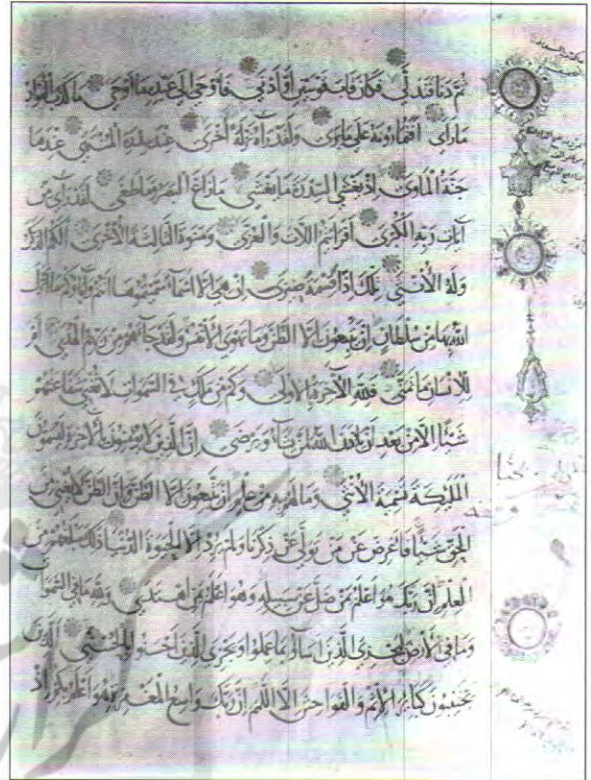 ثم دنا فتدلى فكان قاب قوسين أو أدنى فأوحى إلى عبده ما أوحى ما كذب الفؤاد
ما رأى أفتمارونه على ما يرى ولقد رآه نزلة أخرى عند سدرة المنتهى عندها
جنة المأوى إذ يغشى السدرة ما يغشى ما زاغ البصر وما طغى لقد رأى من
آيات ربه الكبرى أفرأيتم اللات والعزى ومنوة الثالثة الأخرى ألكم الذكر
وله الأنثى تلك إذا قسمة ضيزى إن هي إلا أسماء سميتموها أنتم وآباؤكم ما أنزل
الله بها من سلطان إن يتبعون إلا الظن وما تهوى الأنفس ولقد جاءهم من ربهم الهدى أم
للإنسان ما تمنى فلله الآخرة والأولى وكم من ملك في السموات لا تغني شفاعتهم
شيئا إلا من بعد أن يأذن الله لمن يشاء ويرضى إن الذين لا يؤمنون بالآخرة ليسمون
الملئكة تسمية الأنثى وما لهم به من علم إن يتبعون إلا الظن وإن الظن لا يغني من
الحق شيئا فأعرض عن من تولى عن ذكرنا ولم يرد إلا الحيوة الدنيا ذلك مبلغهم من
العلم إن ربك هو أعلم بمن ضل عن سبيله وهو أعلم بمن اهتدى ولله ما في السموات
وما في الأرض ليجزي الذين أساؤا بما عملوا ويجزي الذين أحسنوا بالحسنى الذين
يجتنبون كبائر الإثم والفواحش إلا اللمم إن ربك واسع المغفرة هو أعلم بكم إذ